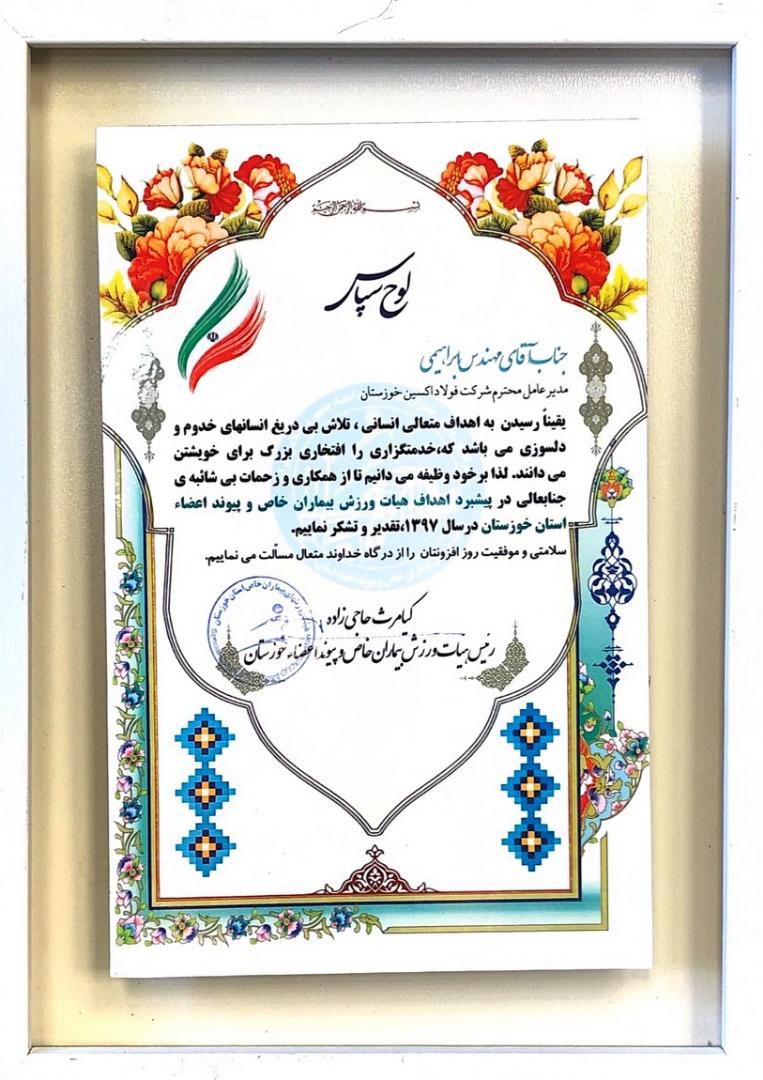 بسم الله الرحمن الرحیم
لوح سپاس
جناب آقای مهندس ابراهیمی
مدیر عامل محترم شرکت فولاد اکسین خوزستان
یقیناً رسیدن به اهداف متعالی انسانی ، تلاش بی دریغ انسانهای خدوم و
دلسوزی می باشد که،خدمتگزاری را افتخاری بزرگ برای خویشتن
می دانند. لذا برخود وظیفه می دانیم تا از همکاری و زحمات بی شائبه ی
جنابعالی در پیشبرد اهداف هیات ورزش بیماران خاص و پیوند اعضاء
استان خوزستان درسال ۱۳۹۷،تقدیر و تشکر نماییم.
سلامتی و موفقیت روز افزونتان را از درگاه خداوند متعال مسألت می نماییم.
کیامرث حاجی زاده
رئیس هیات ورزش بیماران خاص و پیوند اعضاء خوزستان